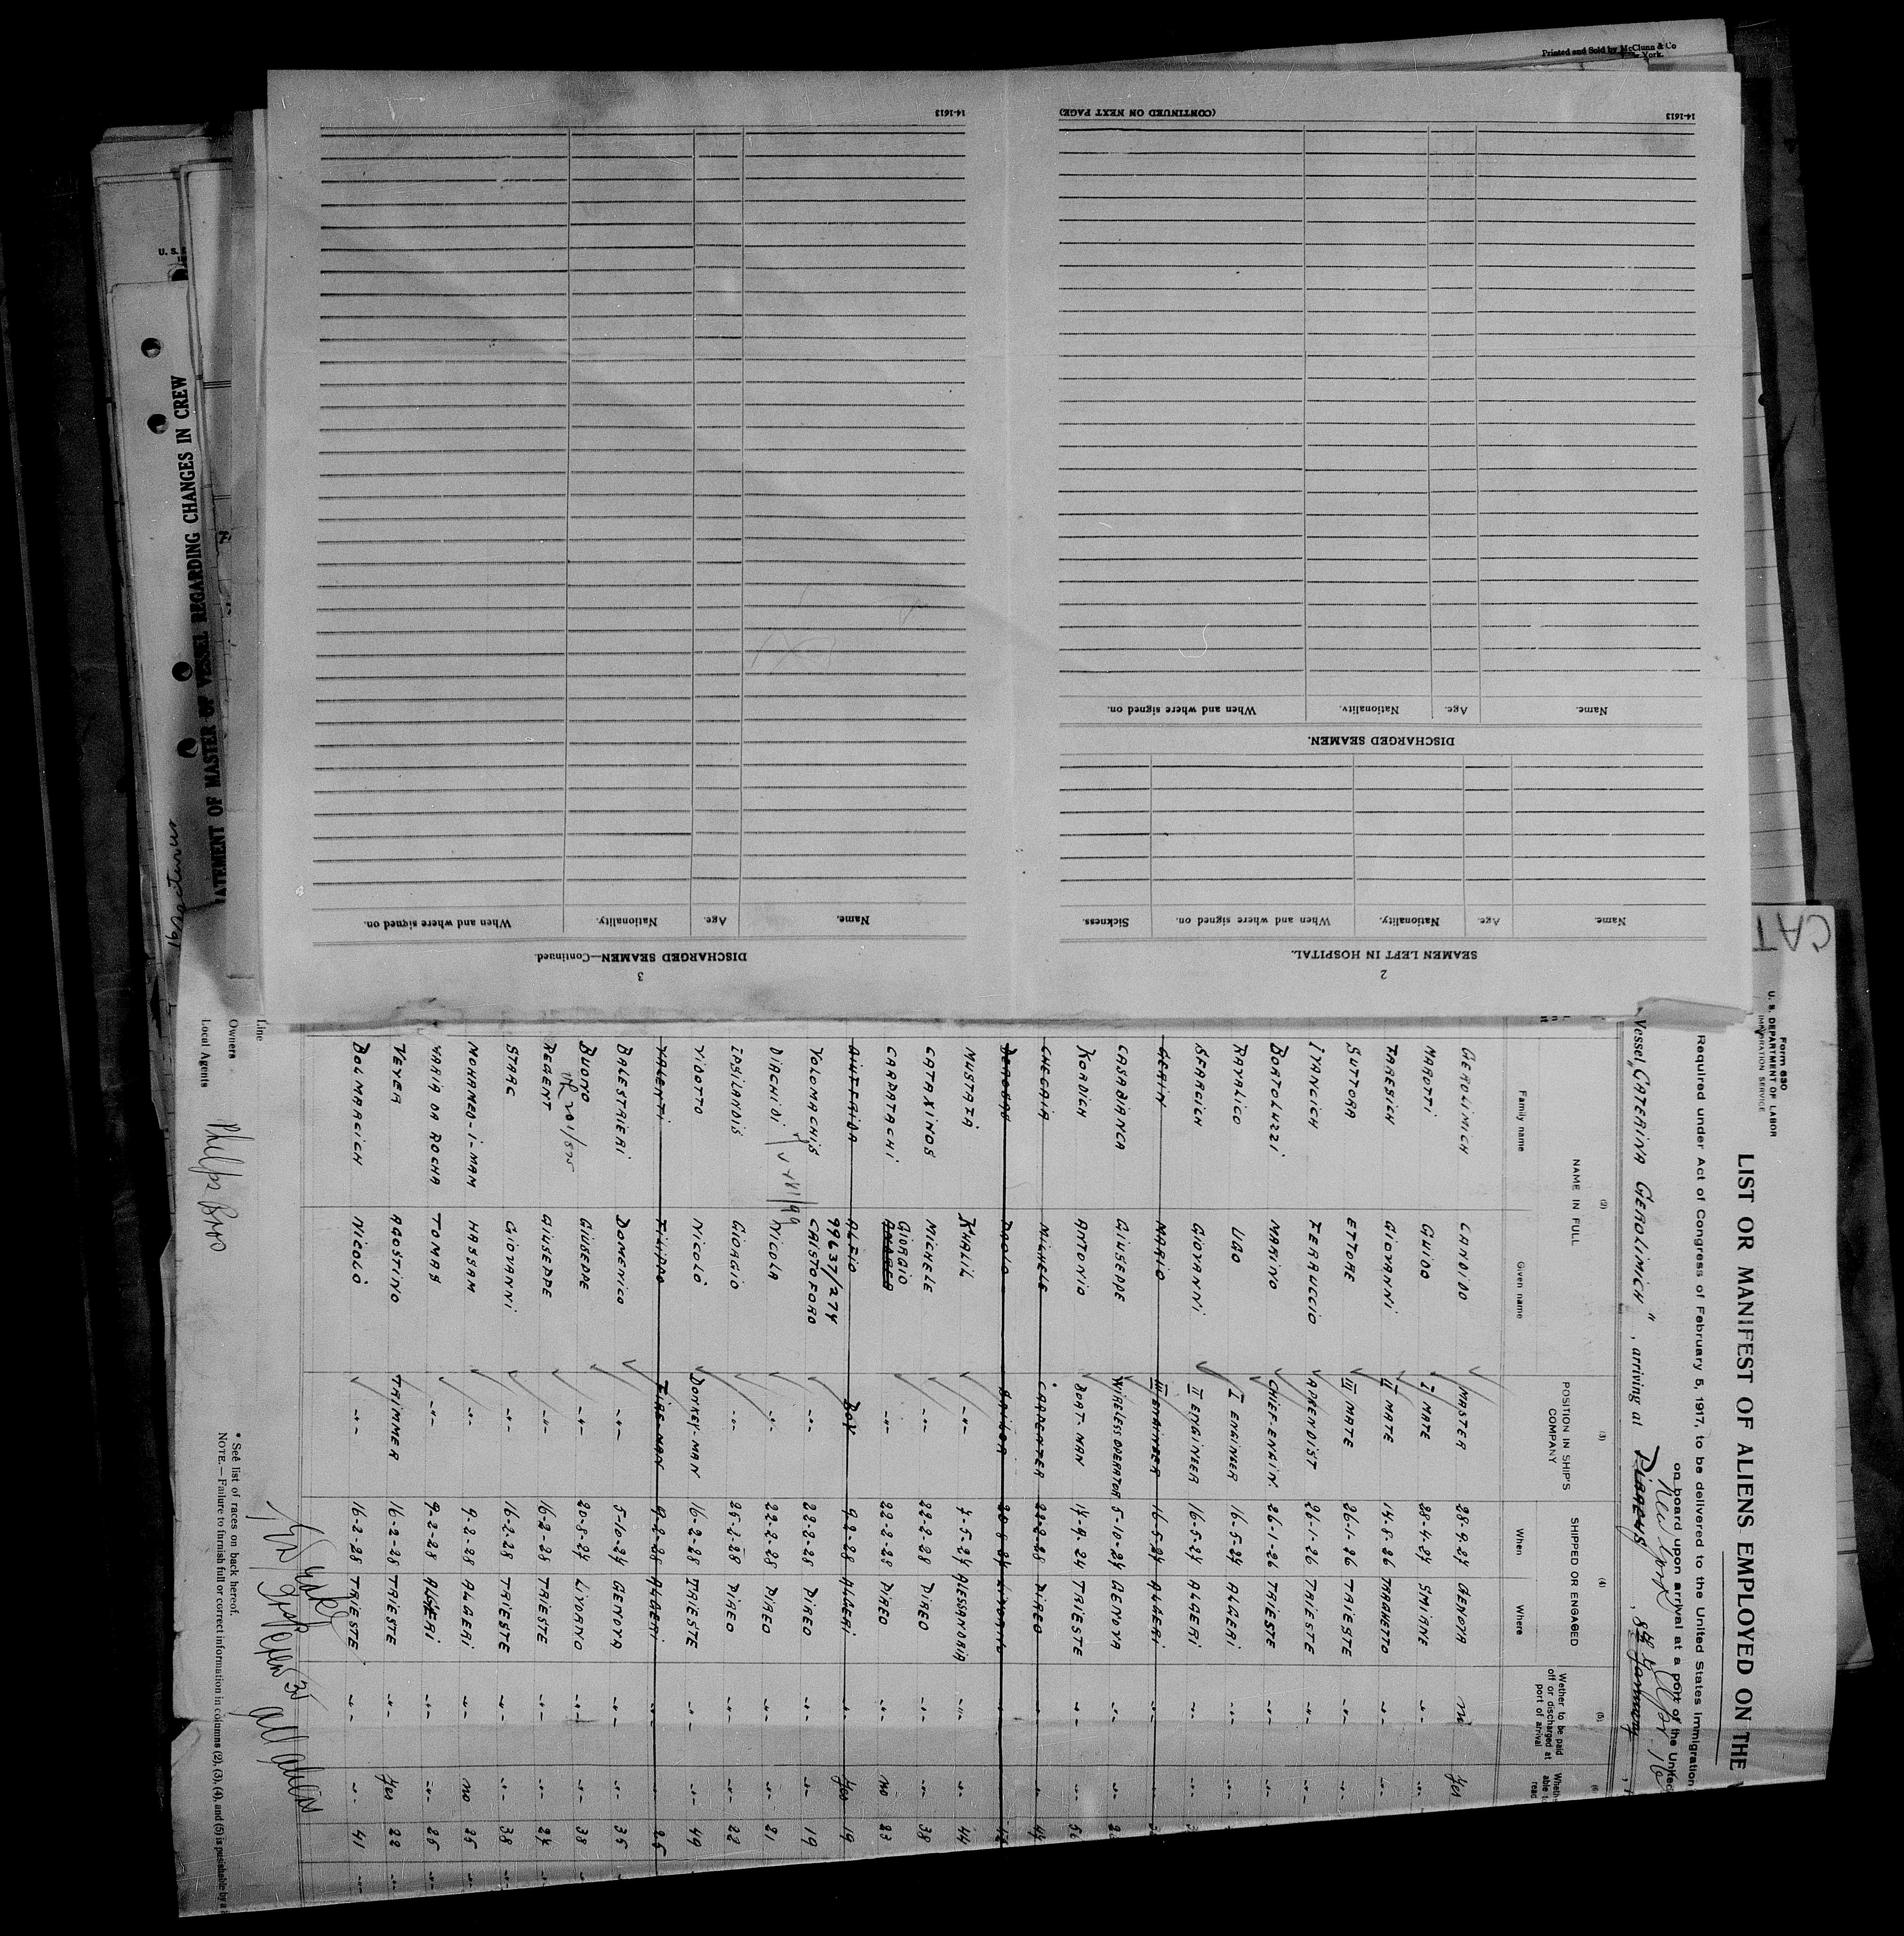 Printed and Sold by McClunn & Co
York.
14-1613
(CONTINUED ON NEXT PAGE)
14-1613
Name.
Age.
Nationality.
When and where signed on.
DISCHARGED SEAMEN.
Name.
Age.
Nationality.
When and where signed on.
Sickness.
SEAMEN LEFT IN HOSPITAL.
2
Name.
Age.
Nationality.
When and where signed on.
DISCHARGED SEAMEN—Continued.
3
U. S.
ATEMENT OF MASTER OF VESSEL REGARDING CHANGES IN CREW
CAT
Form 680
U. S. DEPARTMENT OF LABOR
IMMIGRATION SERVICE
LIST OR MANIFEST OF ALIENS EMPLOYED ON THE
Required under Act of Congress of February 5, 1917, to be delivered to the United States Immigration
on board upon arrival at a port of the United
Vessel "CATERINA GEROLIMICH", arriving at New York, 8th January
(2) (3) (4) (5) (6)
NAME IN FULL
Family name Given name
POSITION IN SHIP'S COMPANY
SHIPPED OR ENGAGED
When Where
Wether to be paid off or discharged at port of arrival
GEROLIMICH CANDIDO MASTER 28-9-27 GENOVA no yes
MAROTTI GUIDO I MATE 28-4-27 SMIRNE -"- -"-
TARESICH GIOVANNI II MATE 14-8-26 TRAGHETTO -"- -"-
SUTTORA ETTORE III MATE 26-1-26 TRIESTE -"- -"-
IVANCICH FERRUCCIO APRENDIST 26-1-26 TRIESTE -"- -"-
BORTOLUZZI MARINO CHIEF-ENGIN. 26-1-26 TRIESTE -"- -"-
RAVALICO UGO I ENGINEER 16-5-27 ALGERI -"- -"-
SFARCICH GIOVANNI II ENGINEER 16-5-27 ALGERI -"- -"-
GERIN MARIO III ENGINEER 16-5-27 ALGERI -"- -"-
CASABIANCA GIUSEPPE WIRELESS OPERATOR 5-10-27 GENOVA -"- -"-
KORDICH ANTONIO BOAT-MAN 14-9-27 TRIESTE -"- -"- 56
CHECAIA MICHELE CARPENTER 22-2-28 PIREO -"- -"- 47
PAOLO SAILOR 20-8-27 LIVORNO
MUSTAFÀ KHALIL -"- 7-5-27 ALESSANDRIA -"- -"- 44
CATAXINOS MICHELE -"- 22-2-28 PIREO -"- -"- 38
CARPATACHI GIORGIO -"- 22-2-28 PIREO -"- no 23
GIUFFRIDA ALFIO BOY 9-2-28 ALGERI -"- yes 19
99637/274
VOLOMACHIS CRISTOFORO -"- 22-2-28 PIREO -"- -"- 19
DIACHIDI NICOLA -"- 22-2-28 PIREO -"- -"- 21
IPSILANDIS GIORGIO -"- 25-2-28 PIREO -"- -"- 22
VIDOTTO NICOLÒ DONKEY-MAN 16-2-28 TRIESTE -"- -"- 49
VALENTI FILIPPO FIRE-MAN 9-2-28 ALGERI -"- -"- 25
BALESTRIERI DOMENICO -"- 5-10-27 GENOVA -"- -"- 35
BUONO GIUSEPPE -"- 20-8-27 LIVORNO -"- -"- 38
REGENT GIUSEPPE -"- 16-2-28 TRIESTE -"- -"- 27
STARC GIOVANNI -"- 16-2-28 TRIESTE -"- -"- 38
MOHAMED-I-MAM HASSAM -"- 9-2-28 ALGERI -"- no 25
MARIA DA ROCHA TOMAS -"- 9-2-28 ALGERI -"- -"- 25
VEYER AGOSTINO TRIMMER 16-2-28 TRIESTE -"- yes 22
BOLMARCICH NICOLÒ -"- 16-2-28 TRIESTE -"- -"- 41
Line
Owners
Local Agents Phelps Bros
* See list of races on back hereof.
NOTE.—Failure to furnish full or correct information in columns (2), (3), (4), and (5) is punishable by a